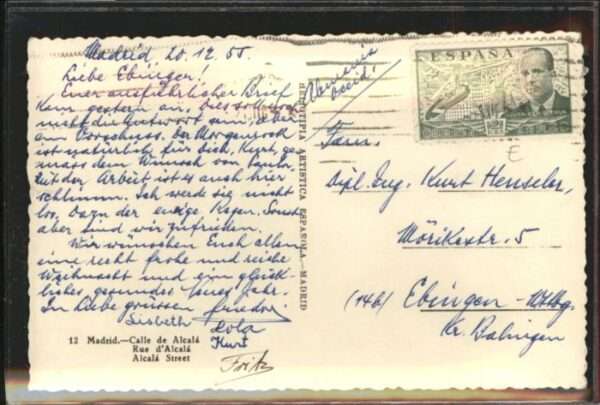 Madrid, 20.12.55.
Liebe Ebinger!
Euer ausführlicher Brief
kam gestern an. Dies soll noch
nicht die Antwort sein, aber
ein Vorschuss. Der Morgenrock
ist natürlich für Dich, Kurt, ge-
mäss dem Wunsch von
mit der Arbeit ist es auch hier
schlimm. Ich werde sie nicht
los. Dazu der ewige Regen. Sonst
aber sind wir zufrieden.
Wir wünschen Euch allen
eine recht frohe und reiche
Weihnacht und ein glück-
liches, gesundes Neues Jahr.
In Liebe grüssen
Lisbeth
Lola
Kurt
Fritz
12 Madrid.—Calle de Alcalá
Rue d'Alcalá
Alcalá Street
HELIOTIPIA ARTISTICA ESPAÑOLA - MADRID
Alemania
occid.
ESPAÑA
Fam.
Dipl. Ing. Kurt Henseler,
Mörikestr. 5
(14b) Ebingen - Wttbg.
Kr. Balingen
E